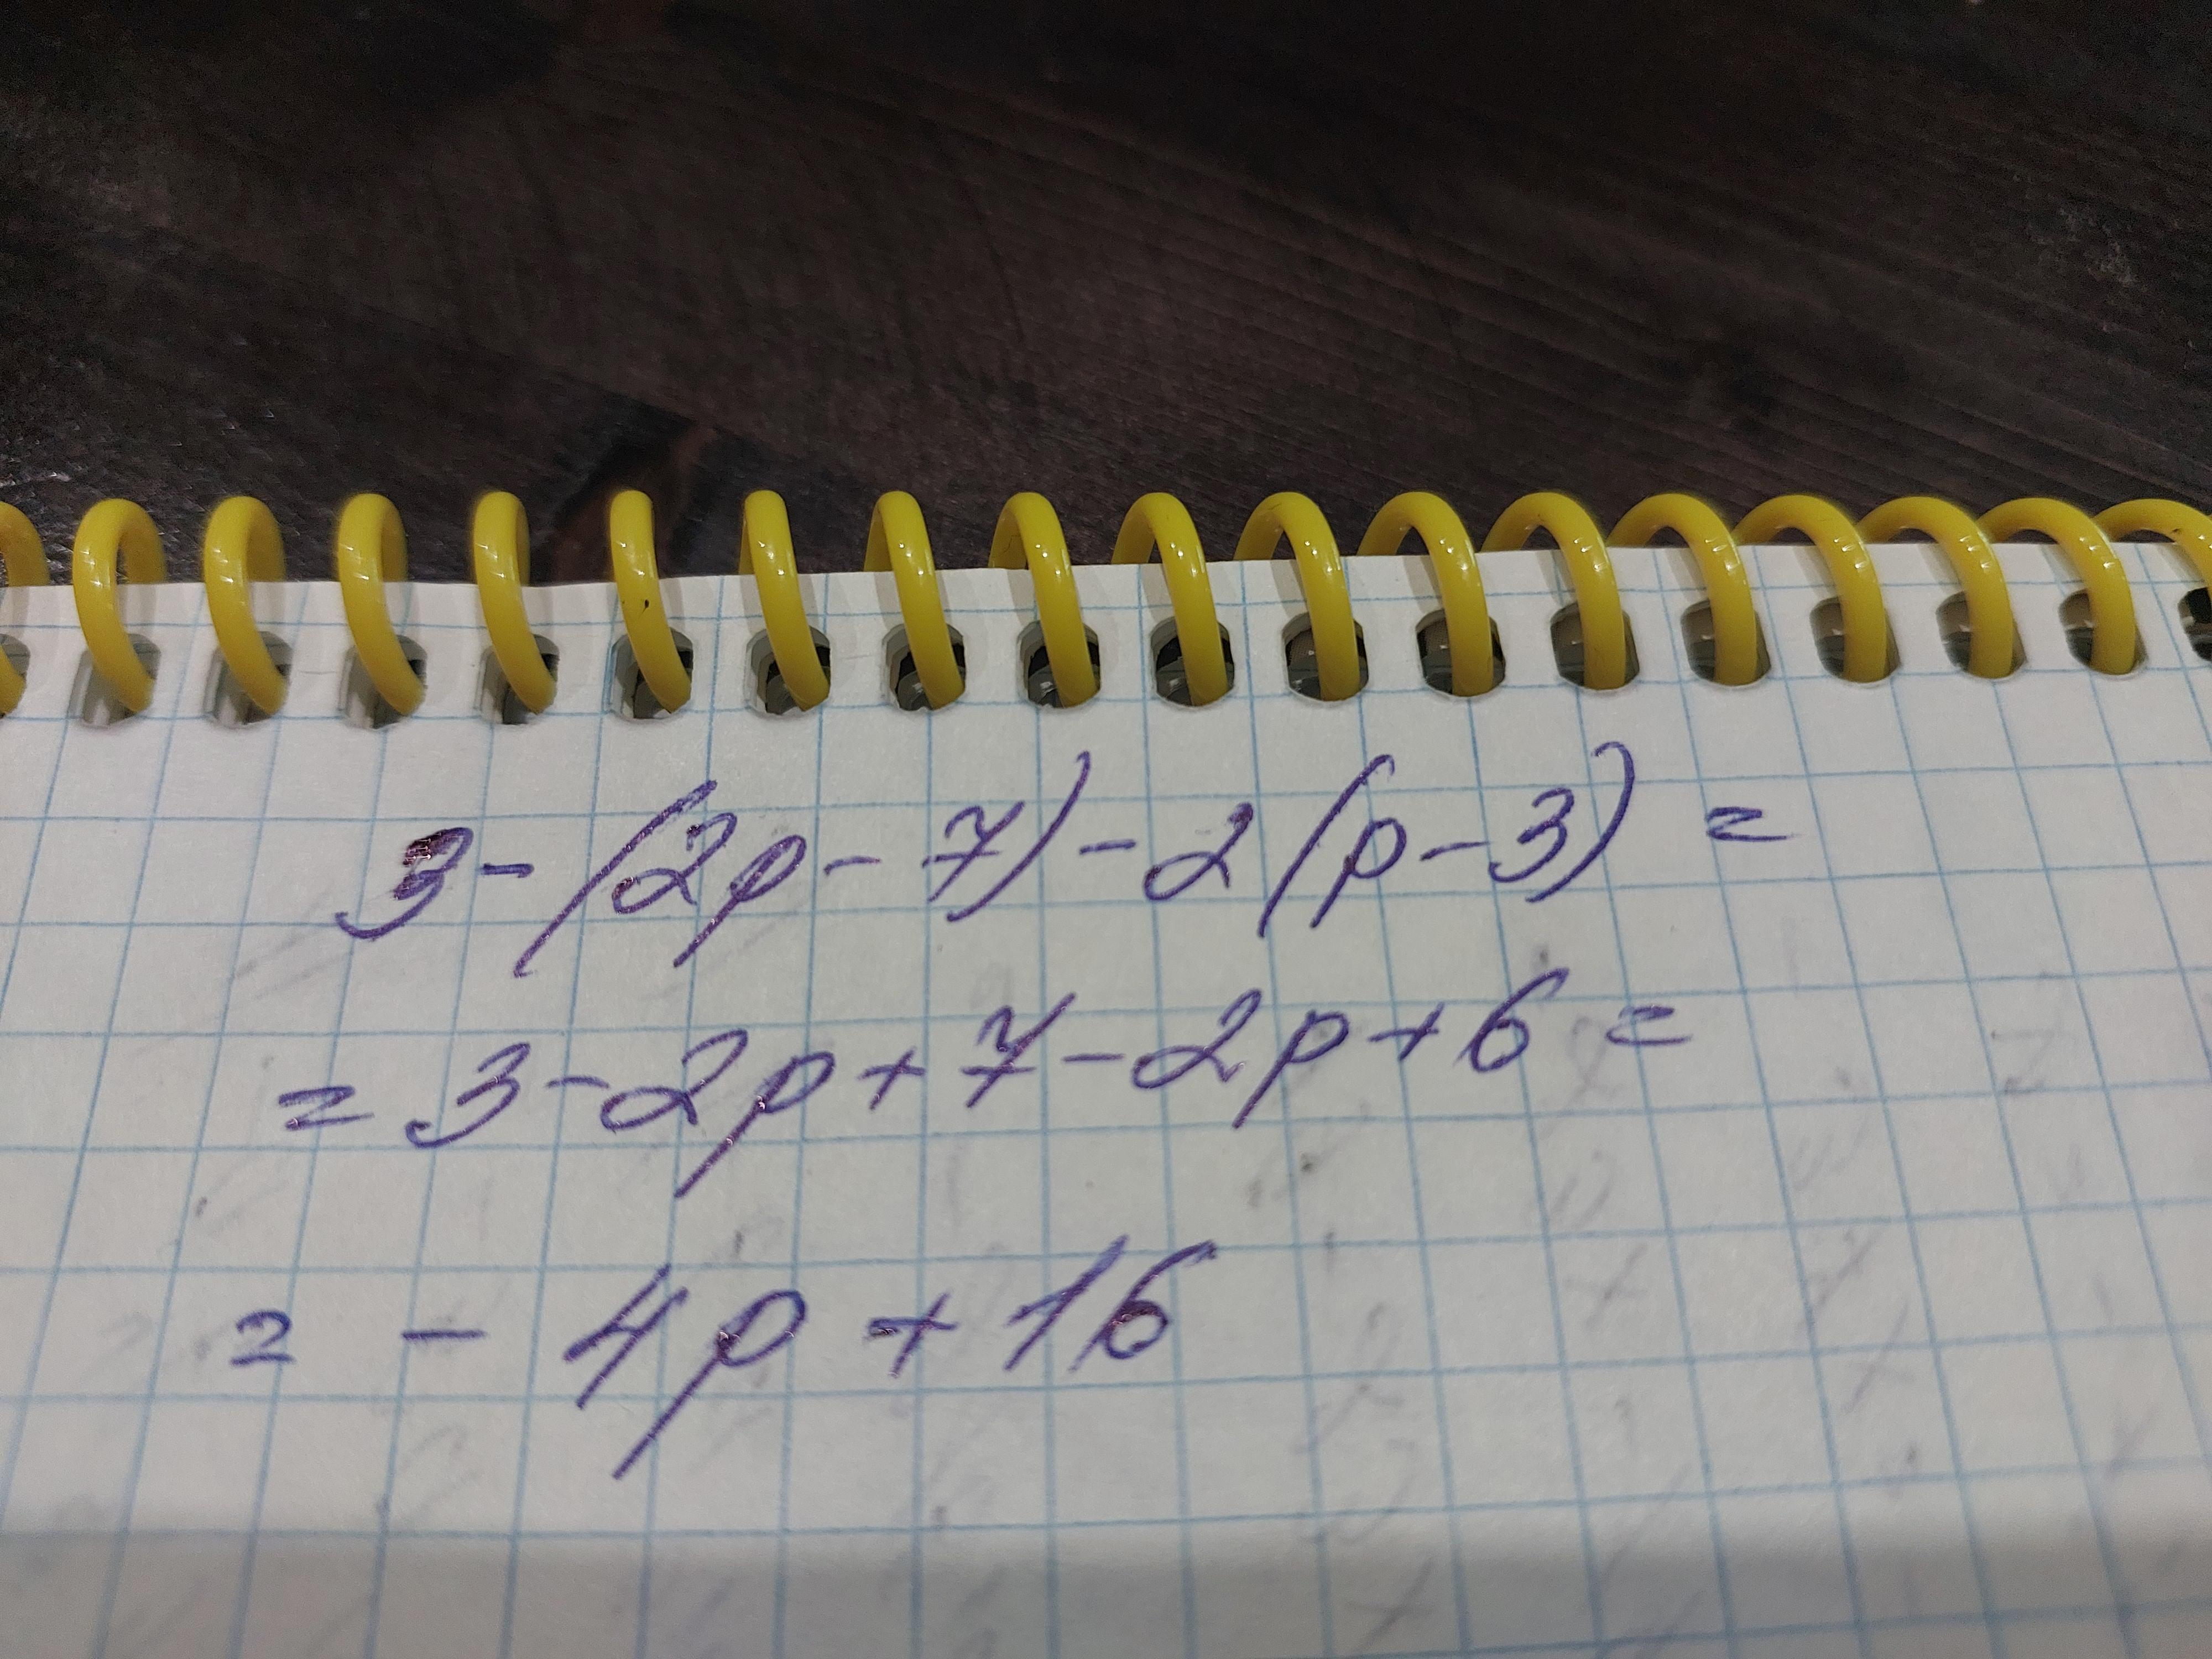 3-(2p-7)-2(p-3)=
=3-2p+7-2p+6=
=-4p+16